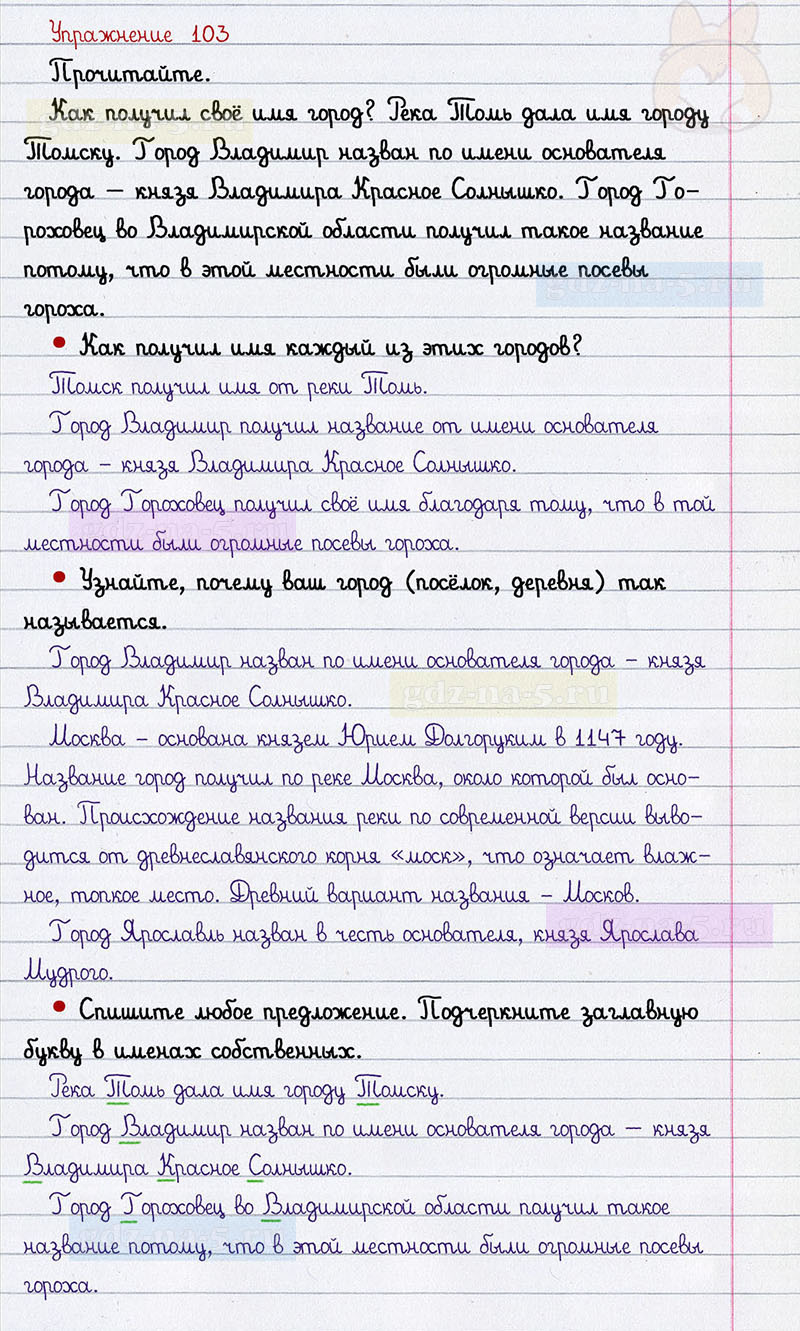 Упражнение 103
Прочитайте.
Как получил своё имя город? Река Томь дала имя городу
Томску. Город Владимир назван по имени основателя
города — князя Владимира Красное Солнышко. Город Го-
роховец во Владимирской области получил такое название
потому, что в этой местности были огромные посевы
gdz-na-5.ru
гороха.
• Как получил имя каждый из этих городов?
Томск получил имя от реки Томь.
Город Владимир получил название от имени основателя
города – князя Владимира Красное Солнышко.
Город Гороховец получил своё имя благодаря тому, что в той
gdz-na-5.ru
местности были огромные посевы гороха.
• Узнайте, почему ваш город (посёлок, деревня) так
называется.
Город Владимир назван по имени основателя города – князя
Владимира Красное Солнышко.
gdz-na-5.ru
Москва – основана князем Юрием Долгоруким в 1147 году.
Название город получил по реке Москва, около которой был осно-
ван. Происхождение названия реки по современной версии выво-
дится от древнеславянского корня «моск», что означает влаж-
ное, топкое место. Древний вариант названия – Москов.
gdz-na-5.ru
Город Ярославль назван в честь основателя, князя Ярослава
Мудрого.
• Спишите любое предложение. Подчеркните заглавную
букву в именах собственных.
Река Томь дала имя городу Томску.
Город Владимир назван по имени основателя города — князя
Владимира Красное Солнышко.
Город Гороховец во Владимирской области получил такое
gdz-na-5.ru
название потому, что в этой местности были огромные посевы
гороха.